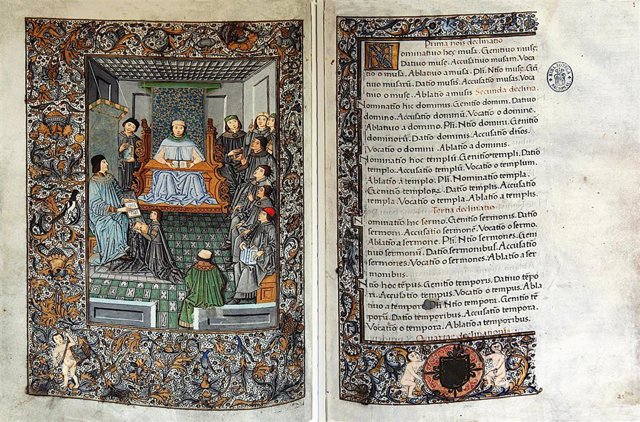 Prima nois declinatio
Nominatiuo hec musa. Genitiuo muse.
Datiuo muse. Accusatiuo musam. Vocatiuo
o musa. Ablatiuo a musa. Pli. Ntio muse. Geni
musarū. Datio musis. Accusatio musas. Voca
tiuo o muse. Ablatio a musis Secunda declina.
Nominatio hic dominus. Genitio domini. Datiuo
domino. Accusatio dominū. Vocatio o domine.
Ablatiuo a domino. Pli. Ntio domini. Genitio
dominorū. Datio dominis. Accusatio dños.
Vocatio o domini. Ablatio a dominis.
Nominatio hoc templū. Genitio templi. Datio
templo. Accusatio templum. Vocatio o templum.
Ablatio a templo. Pli. Ntio templa.
Genitio templorū. Datio templis. Accusatio
templa. Vocatio o templa. Ablatio a templis.
Tertia declinatio
Nominatio hic sermo. Genitio sermonis. Datio
sermoni. Accusatio sermonē. Vocatio o sermo.
Ablatio a sermone. Pli. Ntio sermones. Genitio
sermonū. Datio sermonibus. Accusatio
sermones. Vocatio o sermones. Ablatio a ser
monibus.
Ntio hoc tēpus. Genitio temporis. Datio tēpo
ri. Accusatio tempus. Vocatio o tempus. Abla
tiuo a tempore. Pli Ntio tempora. Genitio tē
porū. Datio temporibus. Accusatio tempora.
Vocatio o tempora. Ablatio a temporibus.